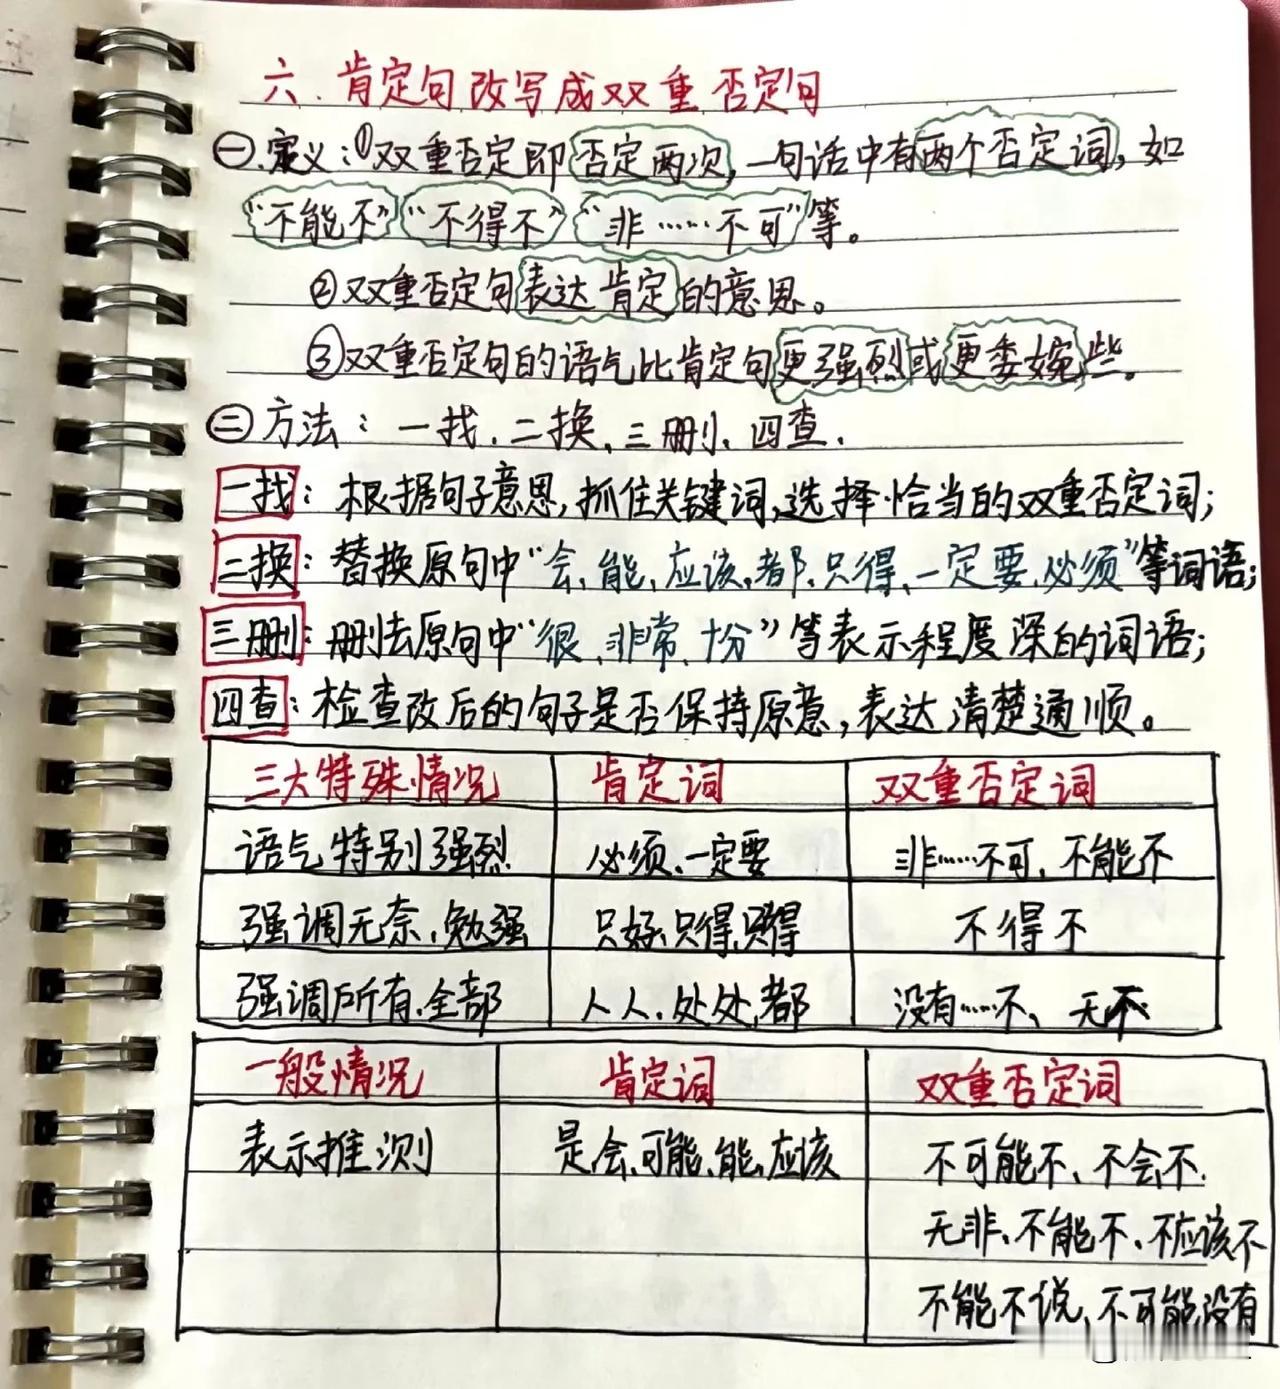 六、肯定句改写成双重否定句
㊀.定义:①双重否定即否定两次,一句话中有两个否定词,如
"不能不""不得不""非……不可"等。
②双重否定句表达肯定的意思。
③双重否定句的语气比肯定句更强烈或更委婉些。
㊁方法:一找、二换、三删、四查.
一找:根据句子意思,抓住关键词,选择恰当的双重否定词;
二换:替换原句中"会、能、应该、都、只得、一定要、必须"等词语;
三删:删去原句中"很、非常、十分"等表示程度深的词语;
四查:检查改后的句子是否保持原意,表达清楚通顺。
三大特殊情况 肯定词 双重否定词
语气特别强烈 必须、一定要 非……不可、不能不
强调无奈、勉强 只好、只得、只得 不得不
强调所有、全部 人人、处处、都 没有……不、无不
一般情况 肯定词 双重否定词
表示推测 是、会、可能、能、应该 不可能不、不会不、
无非、不能不、不应该不
不能不说、不可能没有